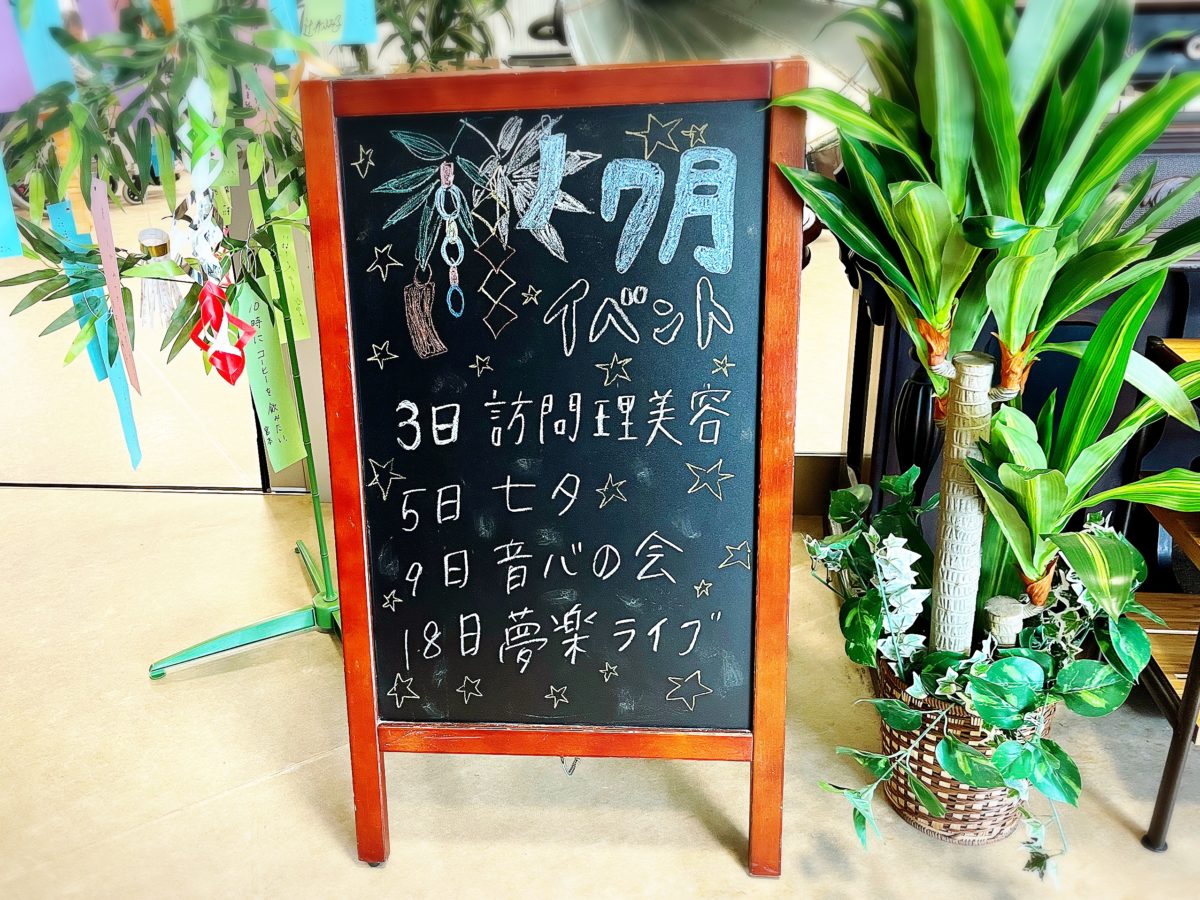 7月
イベント
3日 訪問理美容
5日 七夕
9日 音心の会
18日 夢楽ライブ
10時に コーヒーを 飲みたい。